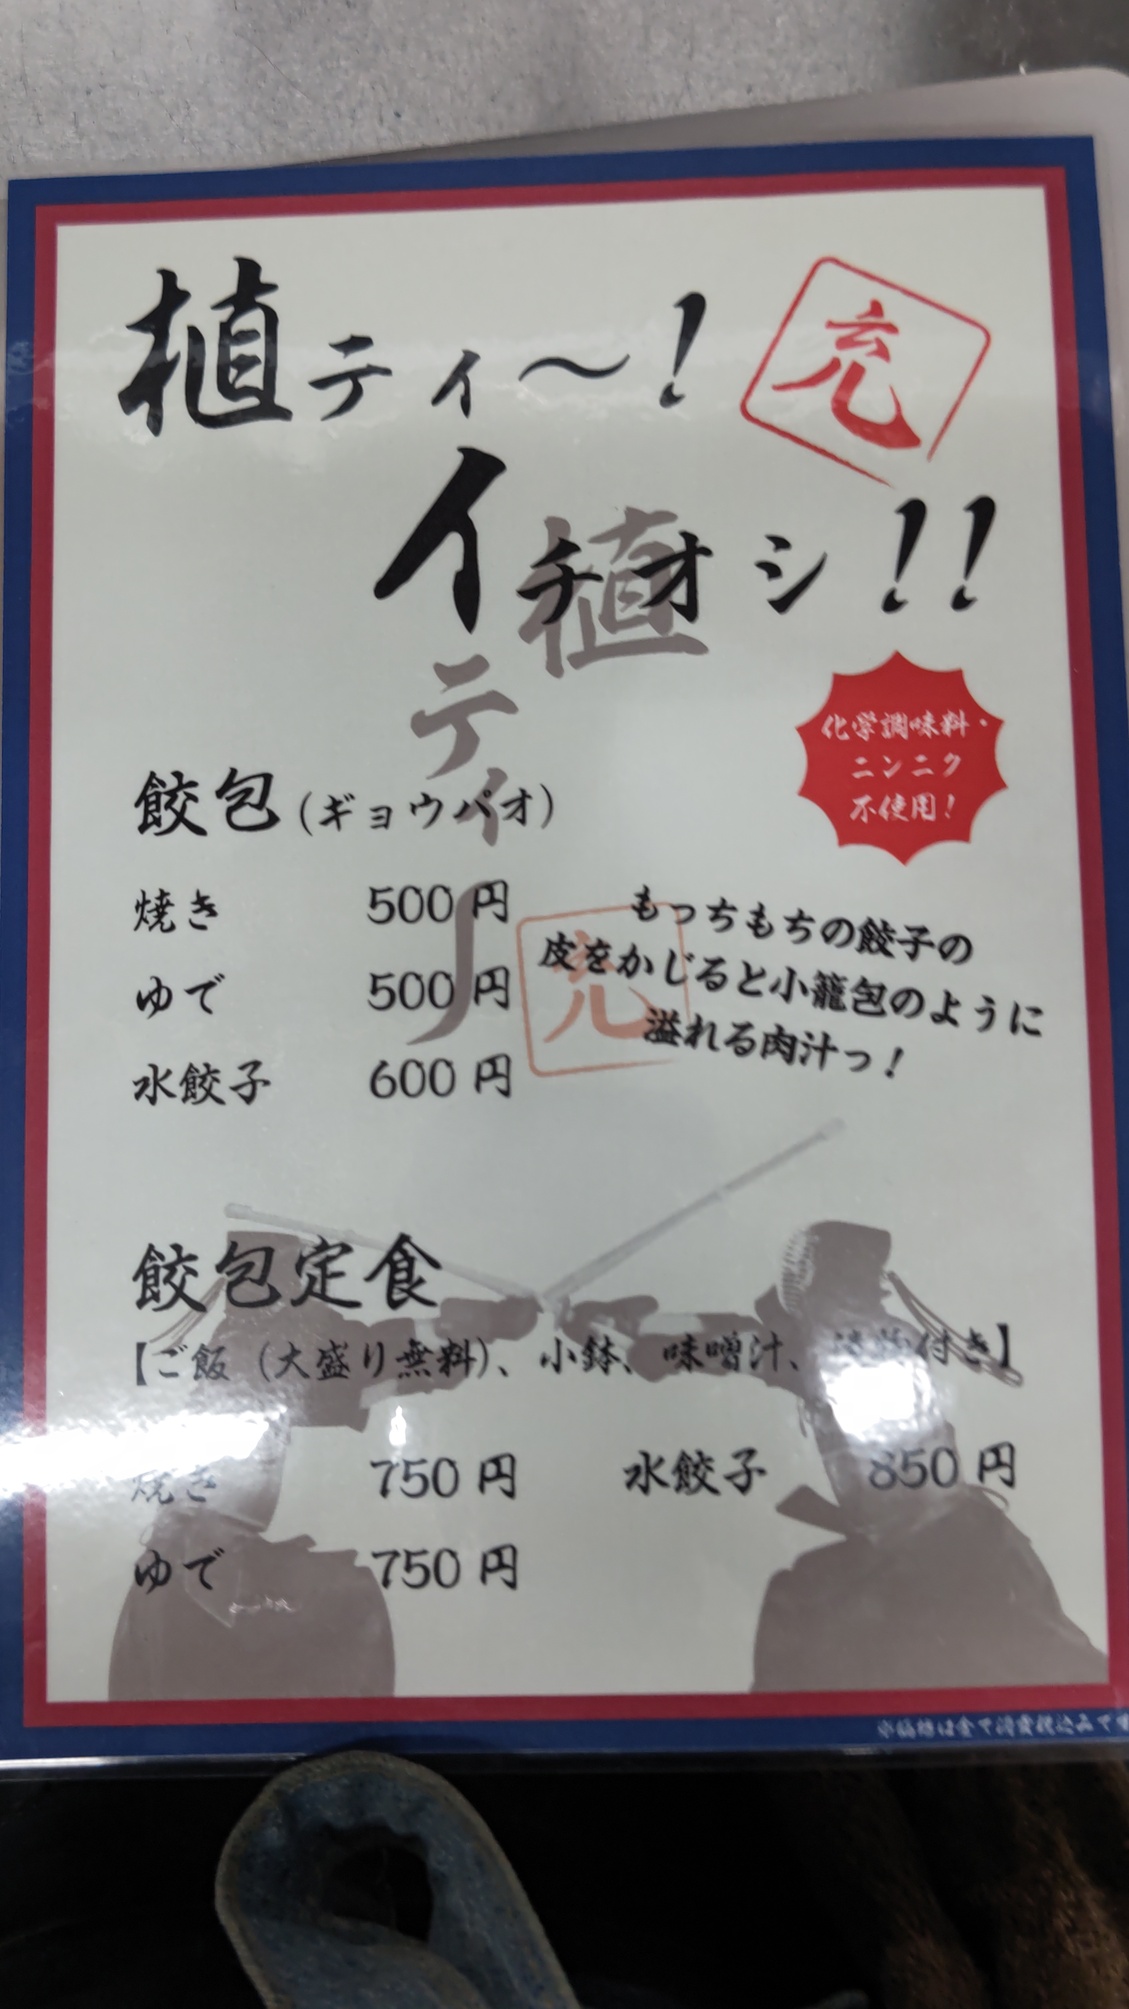 植ティ〜!
充
イチオシ!!
植
ティ〜
化学調味料・
ニンニク
不使用!
餃包(ギョウパオ)
焼き 500円
ゆで 500円
水餃子 600円
充
もっちもちの餃子の
皮をかじると小籠包のように
溢れる肉汁っ!
餃包定食
【ご飯(大盛り無料)、小鉢、味噌汁、漬物付き】
焼き 750円 水餃子 850円
ゆで 750円
※価格は全て消費税込みです